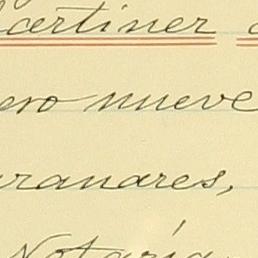 artiner
ero nueve
aranares,
Notaría